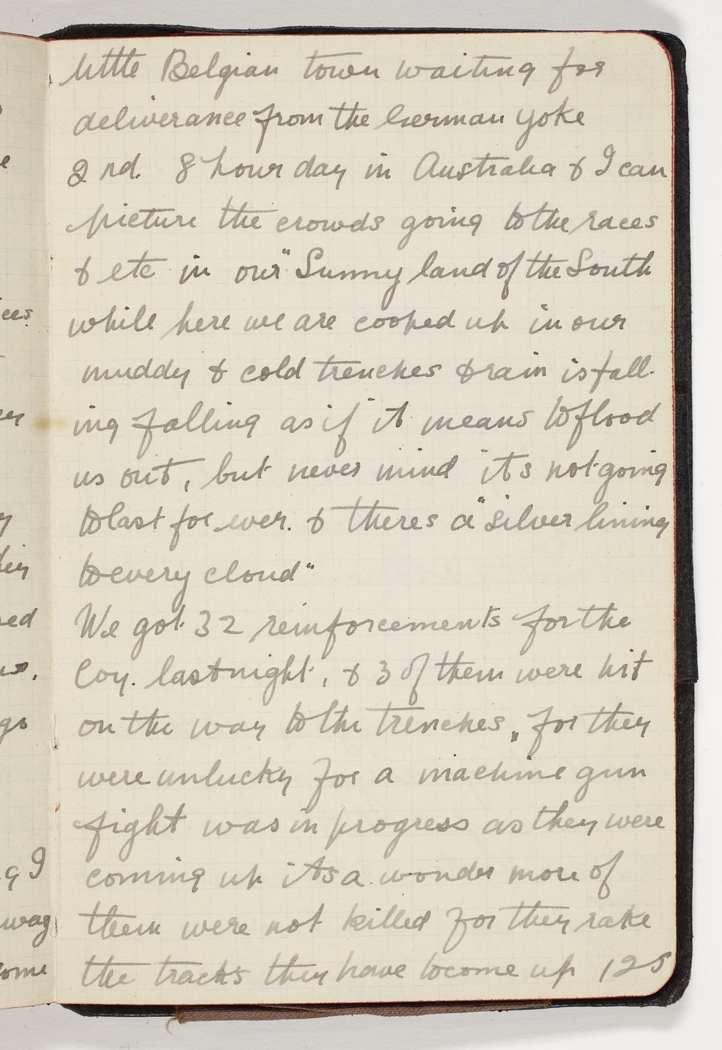 little Belgian town waiting for
deliverance from the German yoke
2nd. 8 hour day in Australia & I can
picture the crowds going to the races
& etc in our "Sunny land of the South
while here we are cooped up in our
muddy & cold trenches & rain is fall-
ing falling as if it means to flood
us out, but never mind its not going
to last for ever. & theres a "silver lining
to every cloud"
We got 32 reinforcements for the
Coy. last night, & 3 of them were hit
on the way to the trenches, for they
were unlucky for a machine gun
fight was in progress as they were
coming up its a wonder more of
them were not killed for they rake
the tracks they have to come up 125